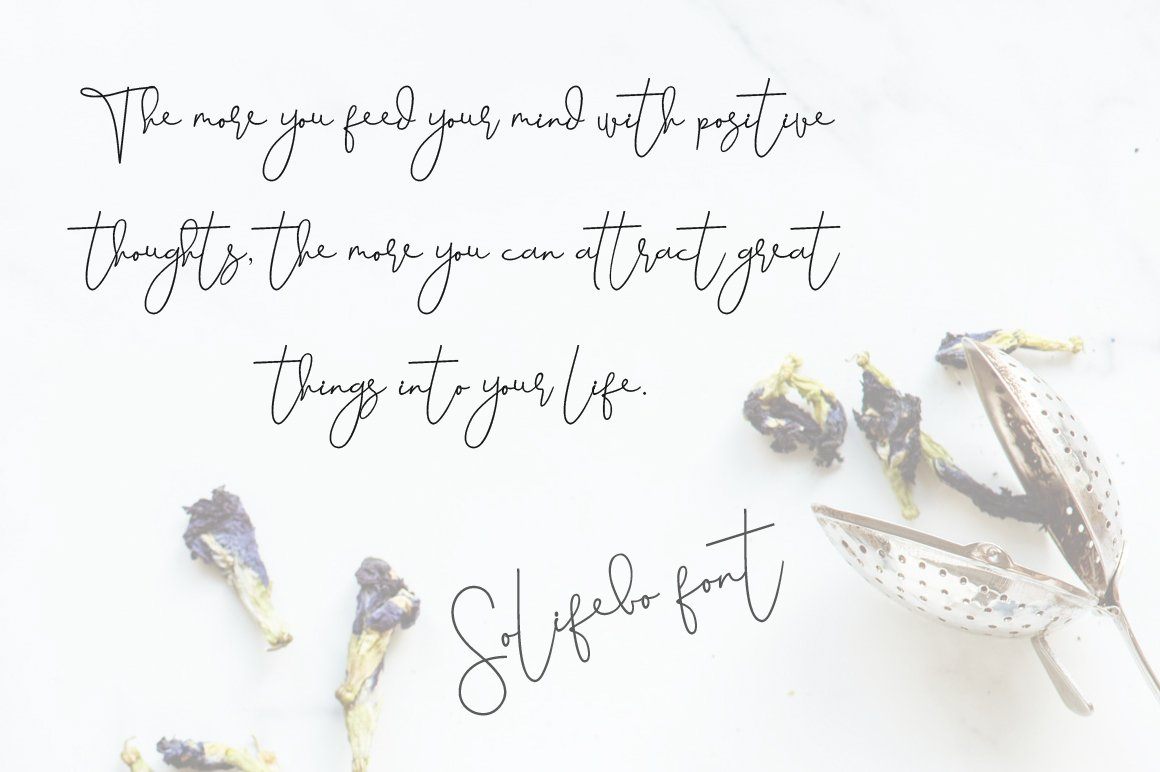 The more you feed your mind with positive
thoughts, the more you can attract great
things into your life.
Solifebo font